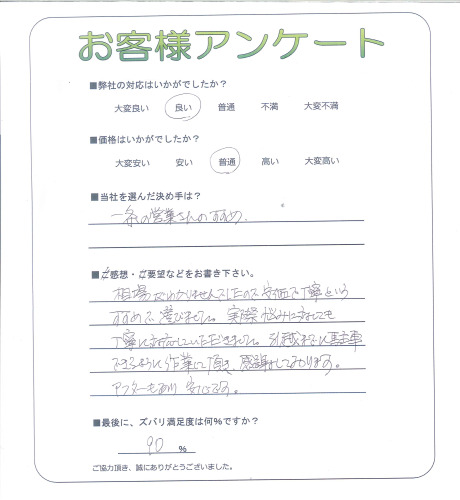 お客様アンケート
■弊社の対応はいかがでしたか?
大変良い 良い 普通 不満 大変不満
■価格はいかがでしたか?
大変安い 安い 普通 高い 大変高い
■当社を選んだ決め手は?
一条の営業さんのすすめ.
■ご感想・ご要望などをお書き下さい。
相場がわかりませんでしたので安価で丁寧という
すすめで選びました。実際悩みにたいしても
丁寧に対応していただきました。引越までに駐車
できるように作業して頂き、感謝しております。
アフターもあり安心です。
■最後に、ズバリ満足度は何%ですか?
90 %
ご協力頂き、誠にありがとうございました。